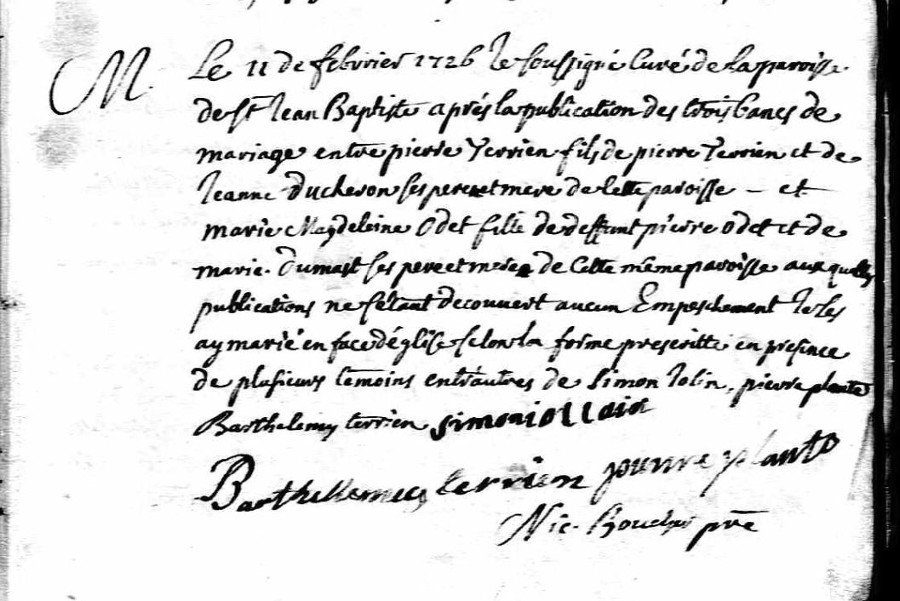 M.
Le 11 de febrier 1726 Je soussigné Curé de la paroisse
de St Jean Baptiste aprés la publication des trois bancs de
mariage entre pierre Terrien fils de pierre Terrien et de
Jeanne Ducheron ses pere et mere de cette paroisse - et
marie Magdeleine Odet fille de deffunt pierre Odet et de
marie. Dumast ses pere et mere de Cette même paroisse aux quelles
publications ne s'étant decouvert aucun Empeschement Je les
ay marié en face d'église selon la forme prescritte en presence
de plusieurs temoins entr'autres de Simon Jolin, pierre plante
Barthelemy terrien simon
Barthellemy terrien pierre plante
Nic. Boucher pre